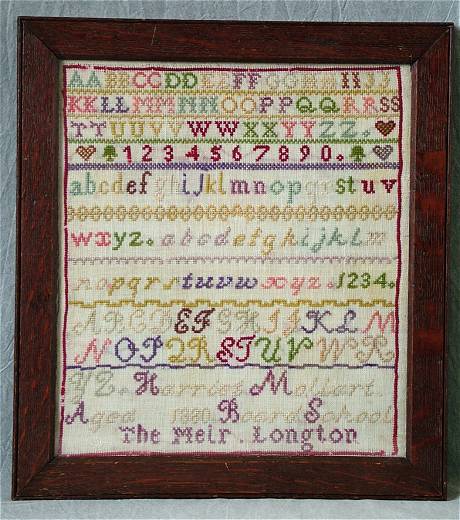 AABBCCDDEEFFGGHHIIJJ
KKLLMMNNOOPPQQRRSS
TTUUVVWWXXYYZZ.
1234567890.
abcdefghijklmnopqrstuv
wxyz. abcdefghijklm
nopqrstuvwxyz. 1234.
ABCDEFGHIJKLM
NOPQRSTUVWX
YZ. Harriet Mollart.
Aged Board School
The Meir. Longton